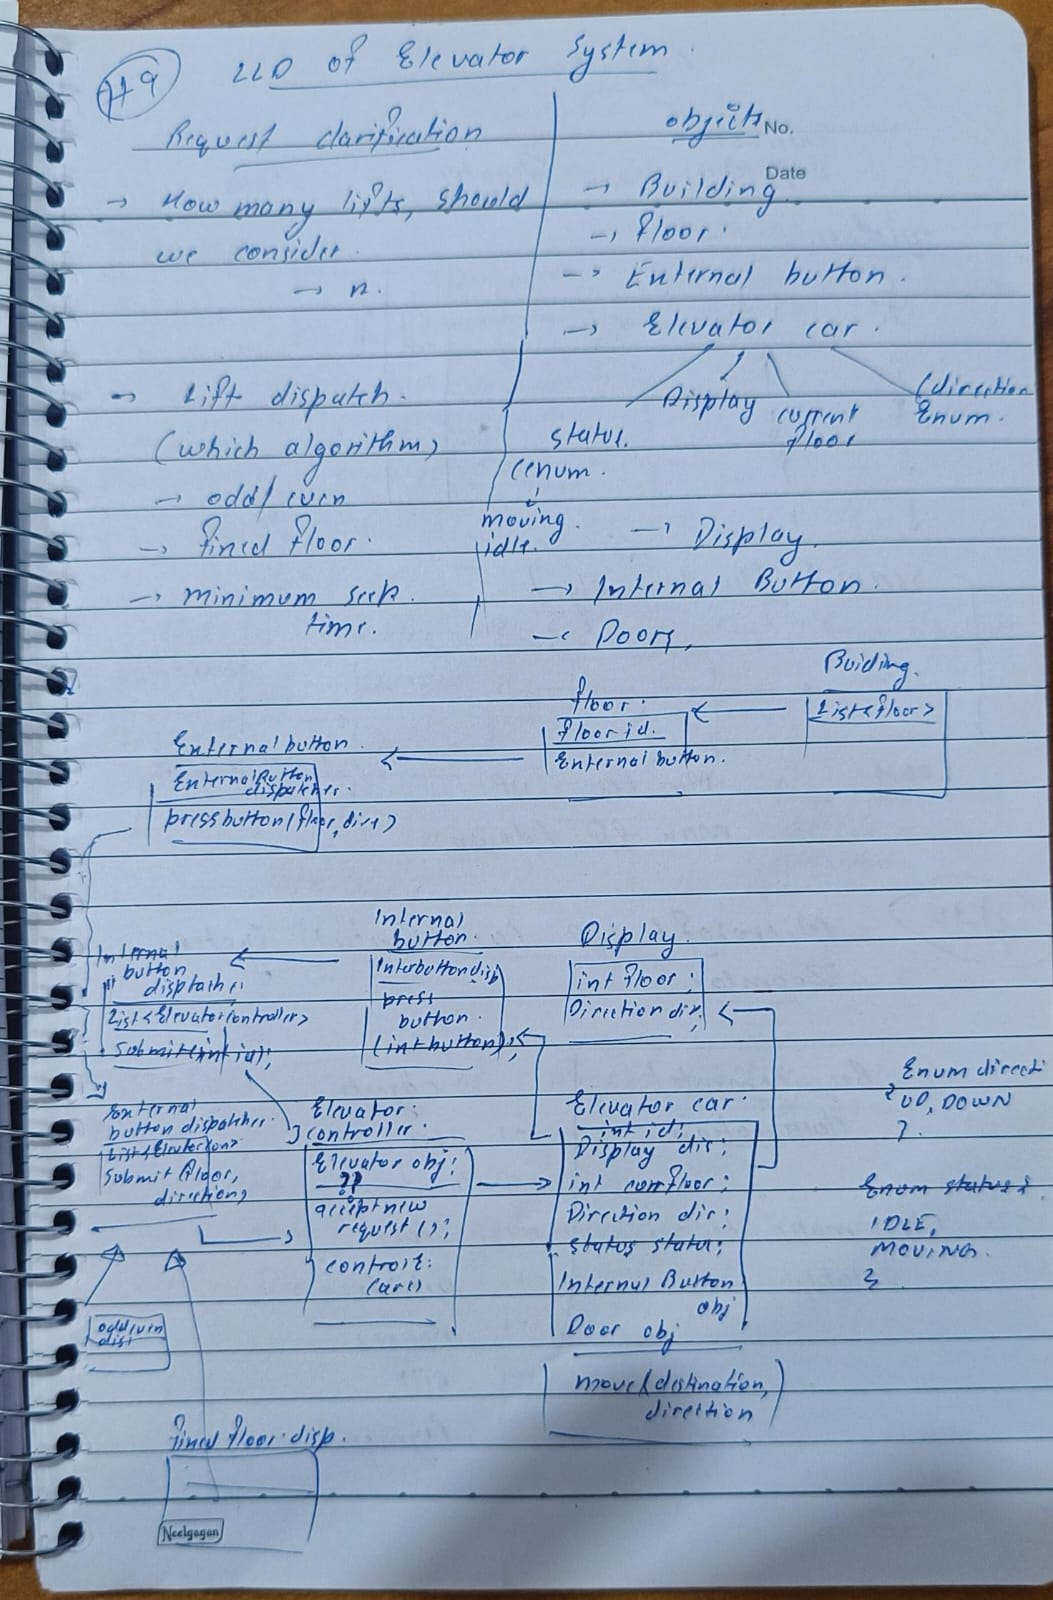 H9
LLD of Elevator System.
Request clarification
→ How many lifts, should
we consider
→ n.
→ Lift dispatch.
(which algorithm)
→ odd/even
→ fined floor.
→ minimum seek
time.
objects
No.
Date
→ Building
→ floor.
→ External button.
→ Elevator car.
status.
Display
current
floor
(direction
Enum.
(enum.
moving.
idle.
→ Display.
→ Internal Button.
→ Doors,
Buiding.
List<floor>
floor.
floor id.
External button.
External button.
External Button
dispatcher.
press button(floor, dire)
Internal
button.
Interbuttondisp
press
button.
(int button);
Display.
int floor;
Direction dir;
Internal
button
displache:
List<Elevator controller>
Submit(int id);
External
button dispatcher.
Submit floor,
direction,
Elevator
controller.
Elevator obj;
??
accept new
request();
control:
car()
Elevator car.
int id;
Display dis;
int currfloor;
Direction dir;
status status;
Internal Button
obj
Door obj
move(distination,
direction
Enum directi
{ UP, DOWN
}.
Enum status {
IDLE,
MOVING.
}.
odd/even
disp
fined floor disp.
Neelgagan